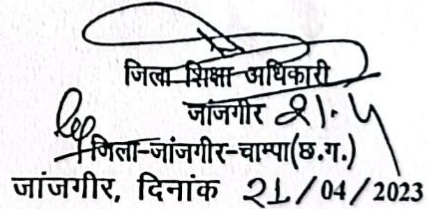 जिला शिक्षा अधिकारी
जांजगीर 21.4
जिला-जांजगीर-चाम्पा(छ.ग.)
जांजगीर, दिनांक 21/04/2023